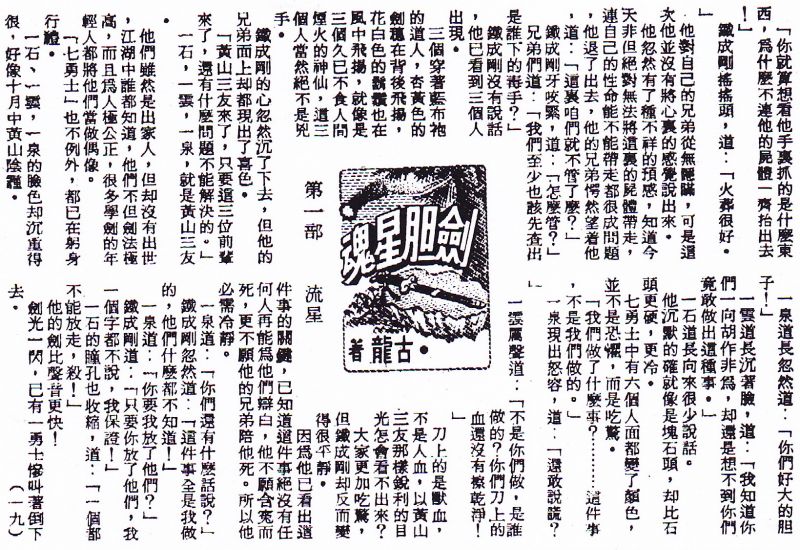 「你就算想看他手裏抓的是什麼東
西，爲什麼不連他的屍體一齊抬出去
！」
鐵成剛搖搖頭，道：「火葬很好。
」
他對自己的兄弟從無隱瞞，可是這
次他並沒有將心裏的感覺說出來。
他忽然有了種不祥的預感，知道今
天非但絕對無法將這裏的屍體帶走，
連自己的性命能不能帶走都很成問題
他退了出去，他的兄弟愕然望着他
道：「這裏咱們就不管了麼？」
鐵成剛牙咬緊，道：「怎麼管？」
兄弟們道：「我們至少也該先查出
是誰下的毒手？」
鐵成剛沒有說話
，他已看到三個人
出現。
三個穿著藍布袍
的道人，杏黃色的
劍穗在背後飛揚，
花白色的鬍鬚也在
風中飛揚，就像是
三個久已不食人間
煙火的神仙，這三
個人當然絕不是兇
手。
鐵成剛的心忽然沉了下去，但他的
兄弟面上却都現出了喜色。
「黃山三友來了，只要這三位前輩
來了，還有什麼問題不能解決的。」
一石，一雲，一泉，就是黃山三友
。
他們雖然是出家人，但却沒有出世
，江湖中誰都知道，他們不但劍法極
高，而且爲人極公正，很多學劍的年
輕人都將他們當做偶像。
「七勇士」也不例外，都已在躬身
行禮。
一石、一雲，一泉的臉色却沉重得
很，好像十月中黃山陰霾。
劍胆星魂
古龍著
第一部 流星
一泉道長忽然道：「你們好大的胆
子！」
一雲道長沉著臉，道：「我知道你
們一向胡作非爲，却還是想不到你們
竟敢做出這種事。」
一石道長向來很少說話。
他沉默的確就像是塊石頭，却比石
頭更硬，更冷。
七勇士中有六個人面都變了顏色，
並不是恐懼，而是吃驚。
「我們做了什麼事？………這件事
，不是我們做的。」
一泉現出怒容，道：「還敢說謊？
」
一雲厲聲道：「不是你們做，是誰
做的？你們刀上的
血還沒有擦乾淨！
」
刀上的是獸血，
不是人血，以黃山
三友那樣銳利的目
光怎會看不出來？
大家更加吃驚，
但鐵成剛却反而變
得很平靜。
因爲他已看出這
件事的關鍵，已知道這件事絕沒有任
何人再能爲他們辯白，他不願含寃而
死，更不願他的兄弟陪他死。所以他
必需冷靜。
一泉道：「你們還有什麼話說？」
鐵成剛忽然道：「這件事全是我做
的，他們什麼都不知道！」
一泉道：「你要我放了他們？」
鐵成剛道：「只要你放了他們，我
一個字都不說，我保證！」
一石的瞳孔也收縮，道：「一個都
不能放走，殺！」
他的劍比聲音更快！
劍光一閃，已有一勇士慘叫著倒下
去。
（一九）